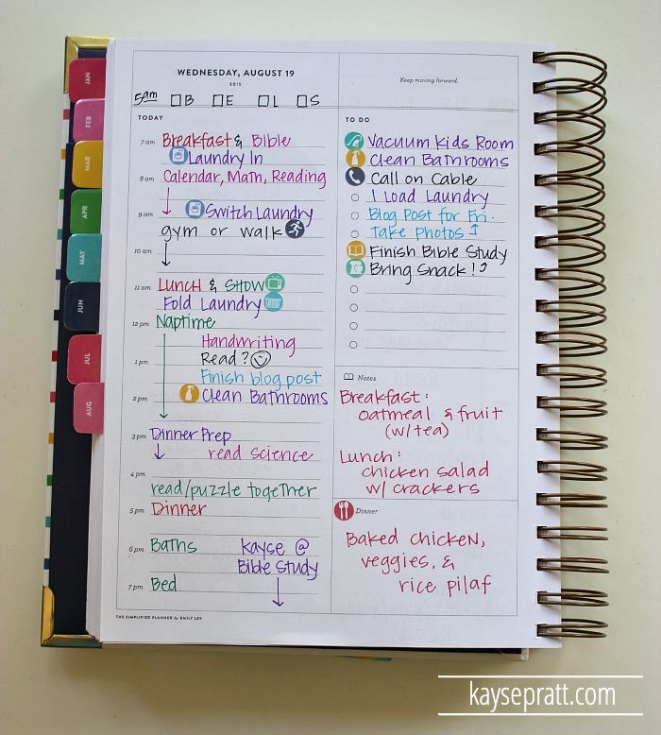 JAN
FEB
MAR
APR
MAY
JUN
JUL
AUG
WEDNESDAY, AUGUST 19
2015
Keep moving forward.
5am □B □E □L □S
TODAY
7 am Breakfast & Bible
Laundry In
8 am Calendar, Math, Reading
9 am Switch Laundry
gym or walk
10 am
11 am Lunch & Show
Fold Laundry
12 pm Naptime
Handwriting
1 pm Read?
Finish blog post
2 pm Clean Bathrooms
3 pm Dinner Prep
read science
4 pm
read/puzzle together
5 pm Dinner
6 pm Baths Kayse @
Bible Study
7 pm Bed
TO DO
Vacuum Kids Room
Clean Bathrooms
Call on Cable
1 Load Laundry
Blog Post for Fri.
Take Photos ↑
Finish Bible Study
Bring Snack! ↑
Notes
Breakfast:
oatmeal & fruit
(w/tea)
Lunch:
chicken salad
w/ crackers
Dinner
Baked chicken,
veggies, &
rice pilaf
THE SIMPLIFIED PLANNER by EMILY LEY
kaysepratt.com